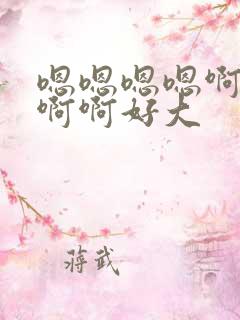 嗯嗯嗯嗯啊
啊啊好大
蒋武